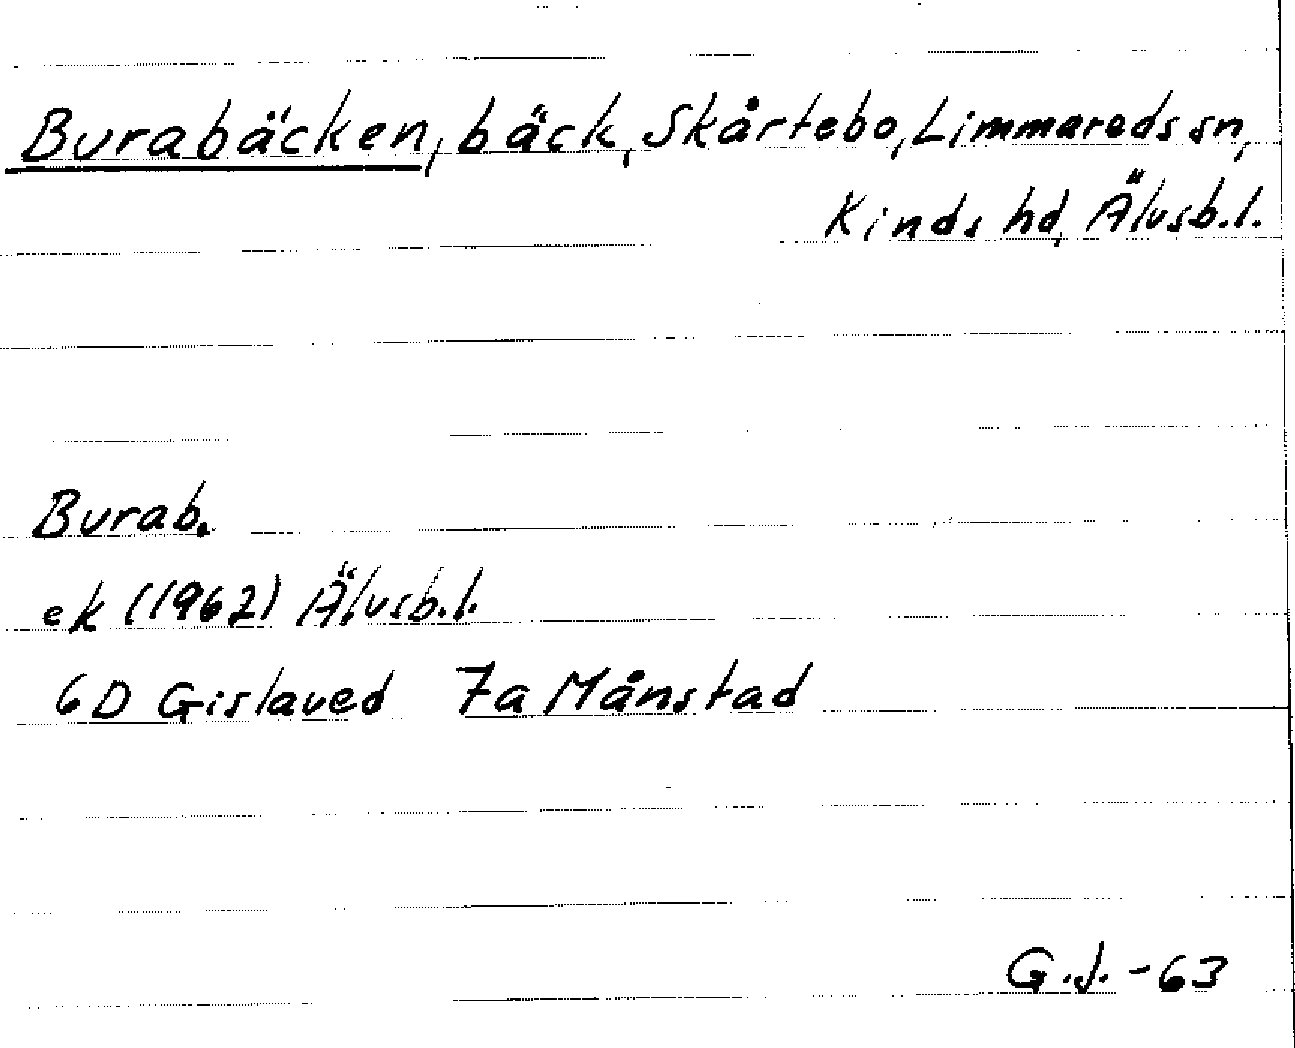 Burabäcken, bäck, Skårtebo, Limmareds sn,
Kinds hd, Älvsb.l.
Burab.
ek (1962) Älvsb.l.
6D Gislaved 7a Månstad
G.J. -63